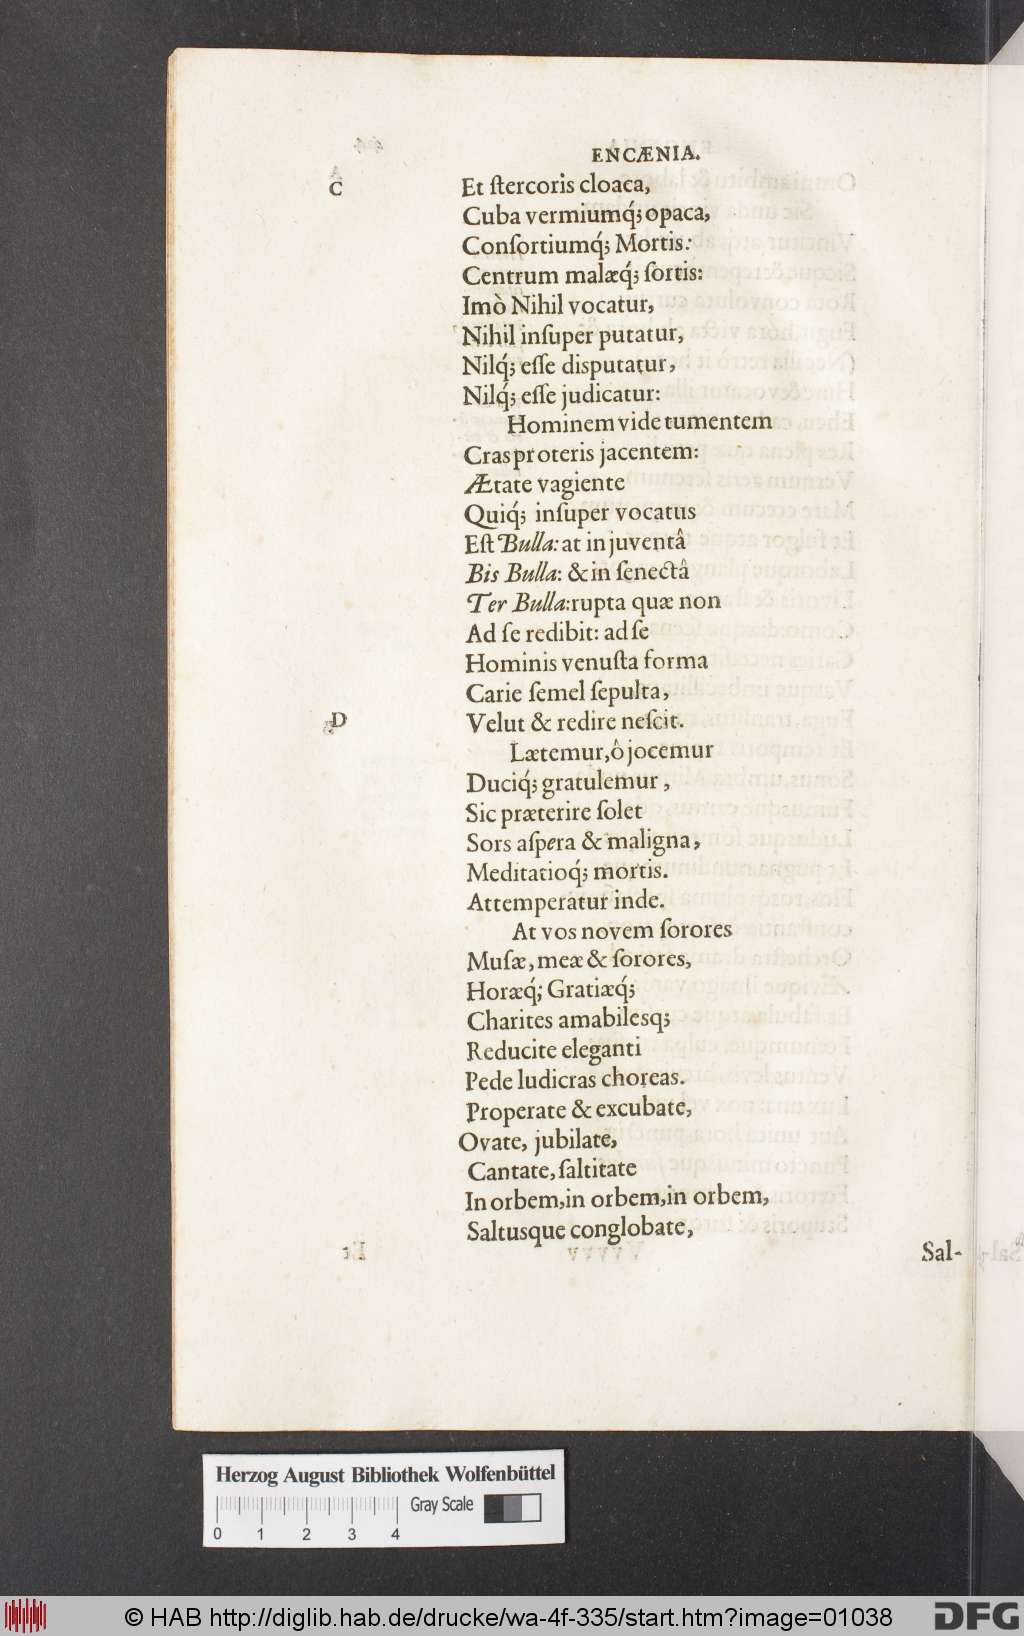 ENCÆNIA.
C
Et ſtercoris cloaca,
Cuba vermiumq́; opaca,
Conſortiumq́; Mortis:
Centrum malæq́; ſortis:
Imò Nihil vocatur,
Nihil inſuper putatur,
Nilq́; eſſe disputatur,
Nilq́; eſſe judicatur:
Hominem vide tumentem
Cras proteris jacentem:
Ætate vagiente
Quiq́; inſuper vocatus
Eſt Bulla: at in juventâ
Bis Bulla: & in ſenectâ
Ter Bulla: rupta quæ non
Ad ſe redibit: ad ſe
Hominis venuſta forma
Carie ſemel ſepulta,
D
Velut & redire neſcit.
Lætemur, ô jocemur
Duciq́; gratulemur,
Sic præterire ſolet
Sors aſpera & maligna,
Meditatioq́; mortis.
Attemperatur inde.
At vos novem ſorores
Muſæ, meæ & ſorores,
Horæq́; Gratiæq́;
Charites amabilesq;
Reducite eleganti
Pede ludicras choreas.
Properate & excubate,
Ovate, jubilate,
Cantate, ſaltitate
In orbem, in orbem, in orbem,
Saltusque conglobate,
Sal-
Herzog August Bibliothek Wolfenbüttel
Gray Scale
0 1 2 3 4
© HAB http://diglib.hab.de/drucke/wa-4f-335/start.htm?image=01038
DFG